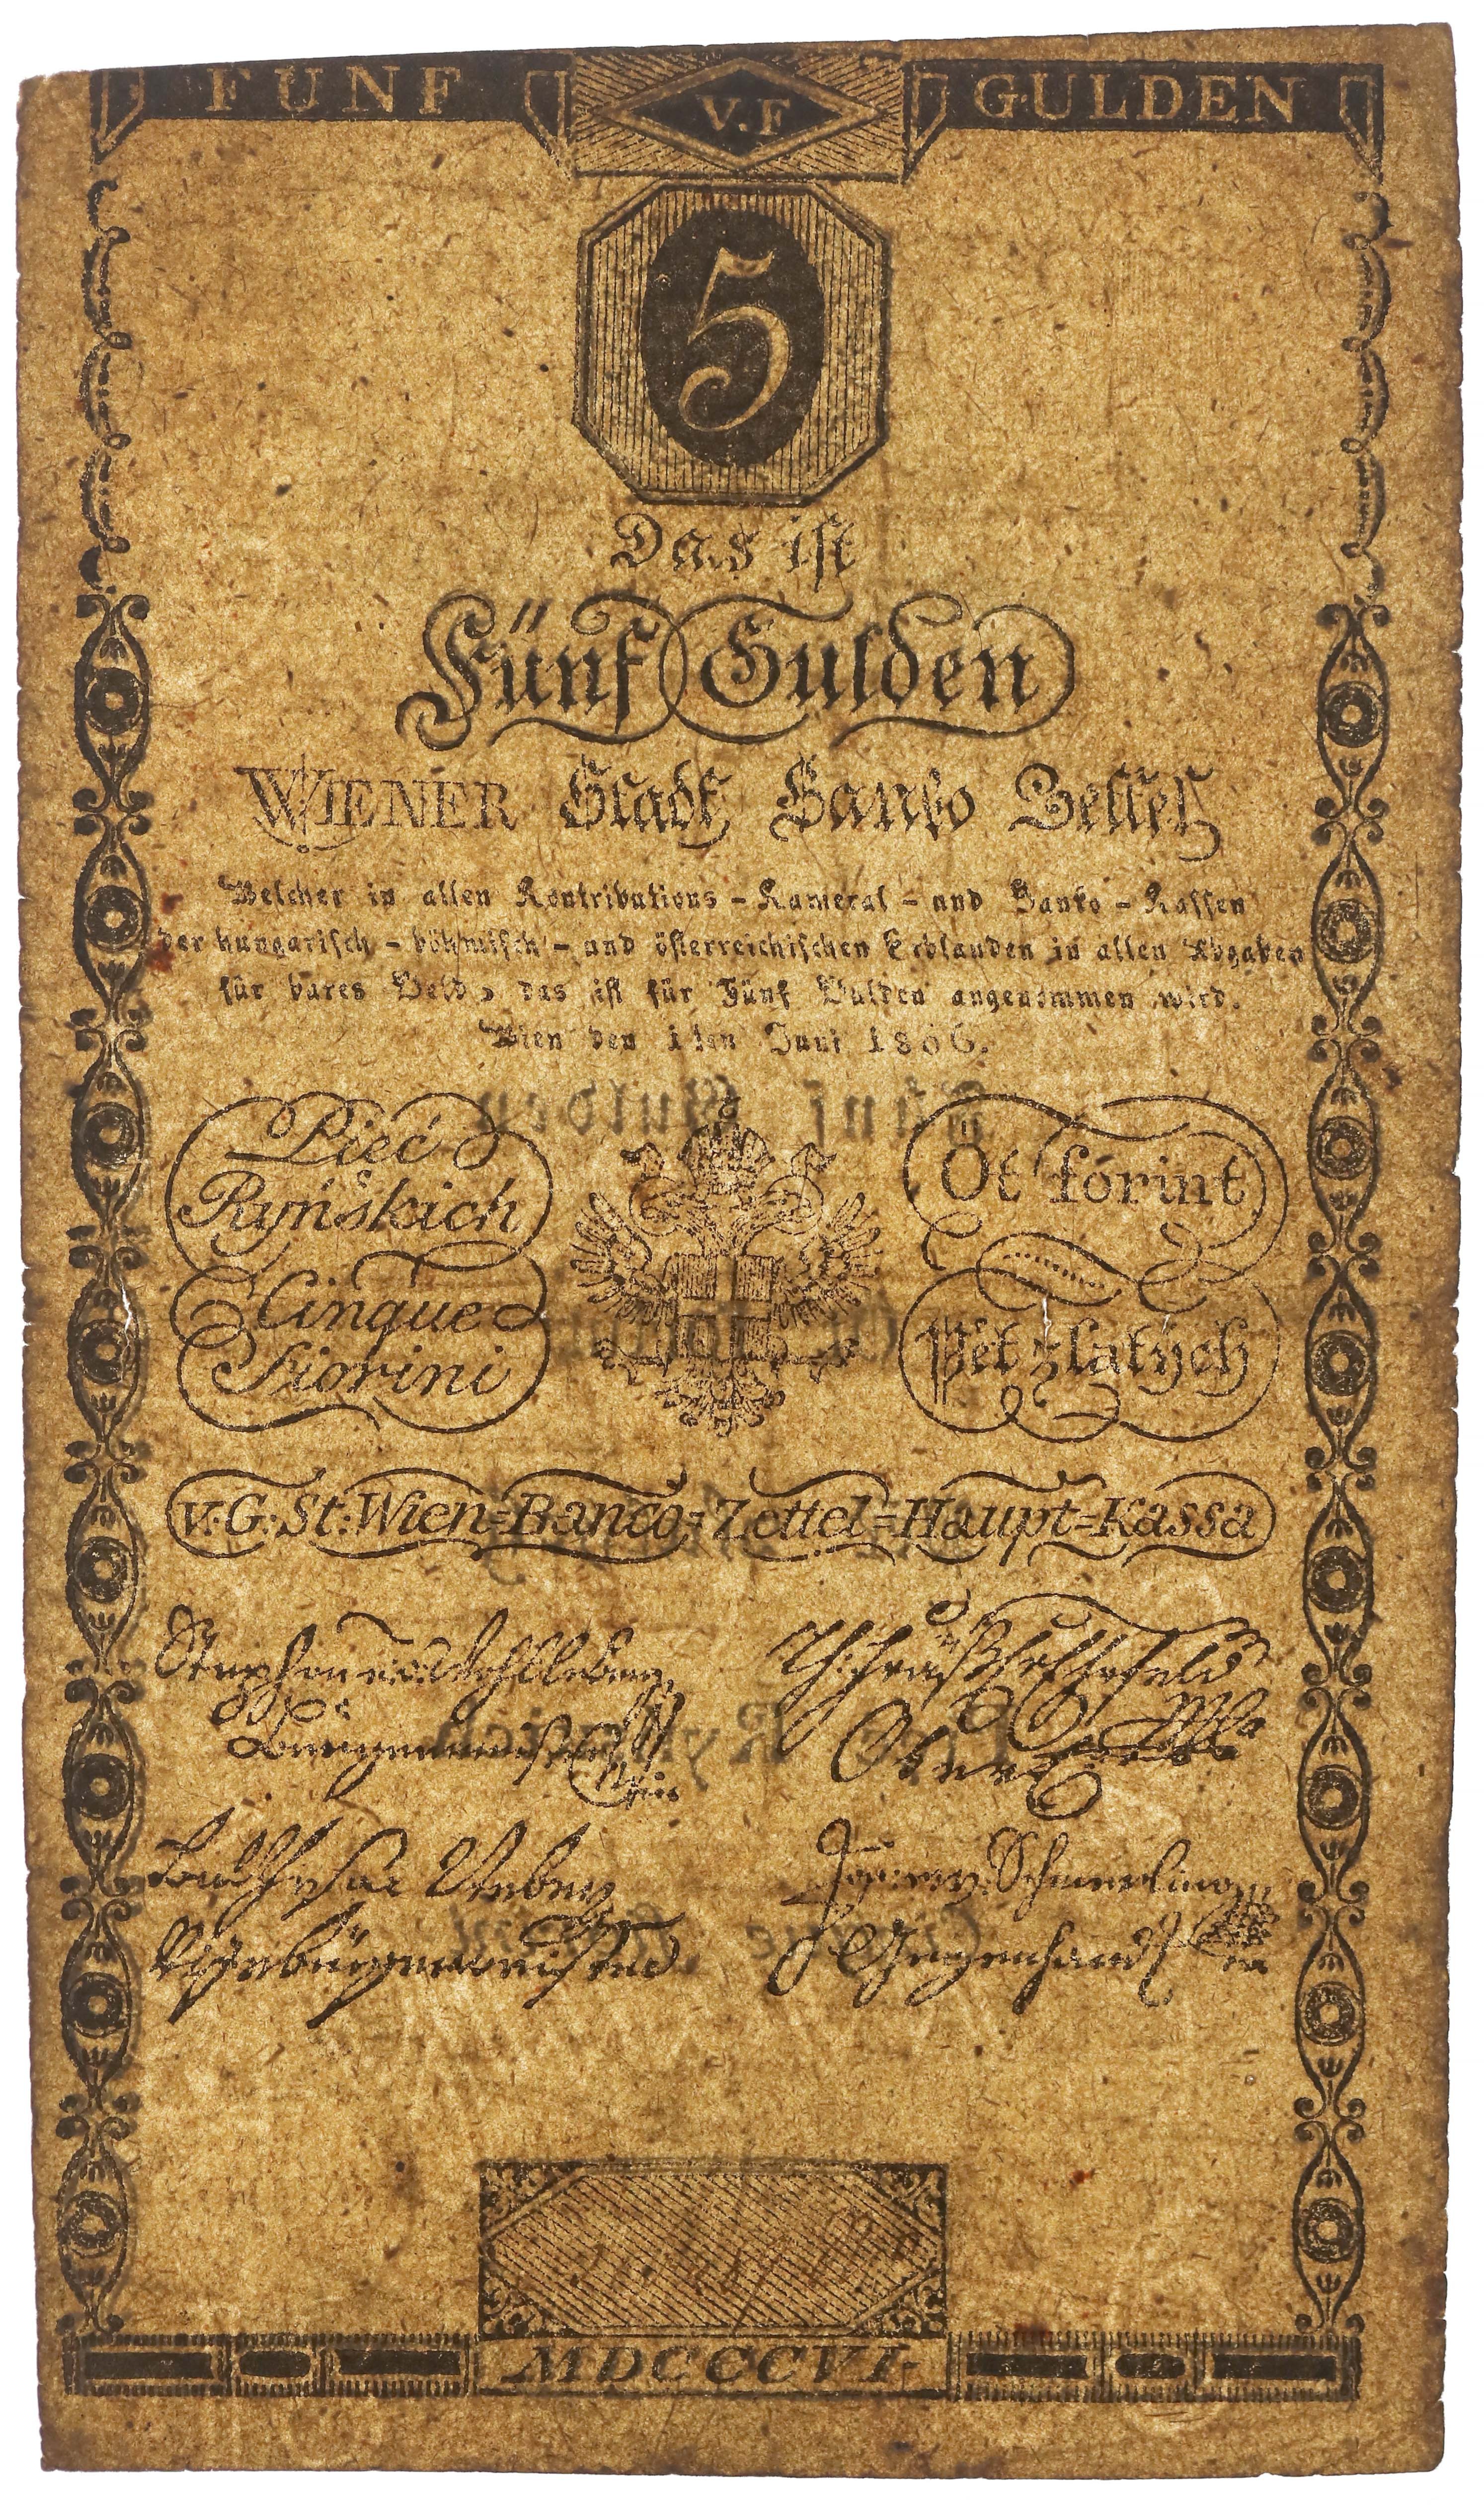 FÜNF V.F GULDEN
5
Das ist
Fünf Gulden
WIENER Stadt Banko Zettel
Welcher in allen Kontributions - Kameral - und Banko - Kassen
der hungarisch - böhmisch - und österreichischen Erblanden in allen Abgaben
für bares Geld, das ist für Fünf Gulden angenommen wird.
Wien den 1ten Juni 1806.
Fünf Gulden
Pieć
Ryńskich
Öt forint
Cinque
Fiorini
Pět zlatych
V. G. St. Wien=Banco=Zettel=Haupt=Kassa
MDCCCVI.